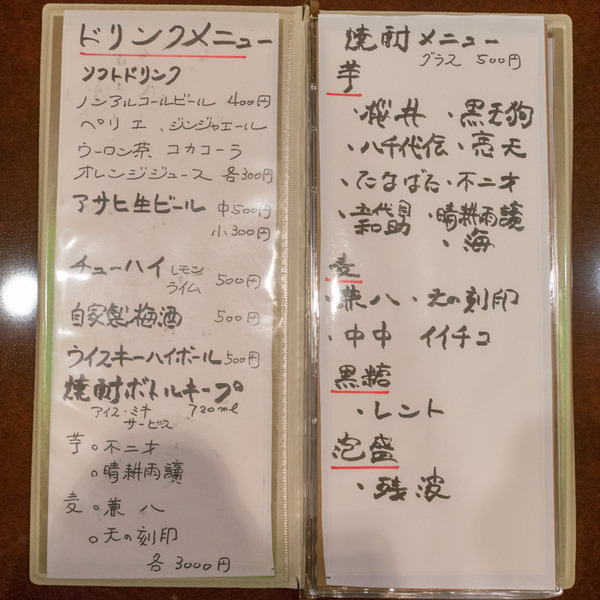 ドリンクメニュー
ソフトドリンク
ノンアルコールビール 400円
ペリエ 、ジンジャエール
ウーロン茶 コカコーラ
オレンジジュース 各300円
アサヒ生ビール 中500円
小300円
チューハイ レモン ライム 500円
自家製梅酒 500円
ウイスキーハイボール 500円
焼酎ボトルキープ
アイス・ミネ 720ml
サービス
芋 。不二才
。晴耕雨讀
麦 。兼八
。天の刻印
各 3000円
焼酎メニュー
グラス 500円
芋
・桜井 ・黒天狗
・八千代伝 ・亮天
・たなばた ・不二才
・五代目和助 ・晴耕雨讀
・海
麦
・兼八 ・天の刻印
・中中 イイチコ
黒糖
・レント
泡盛
・残波